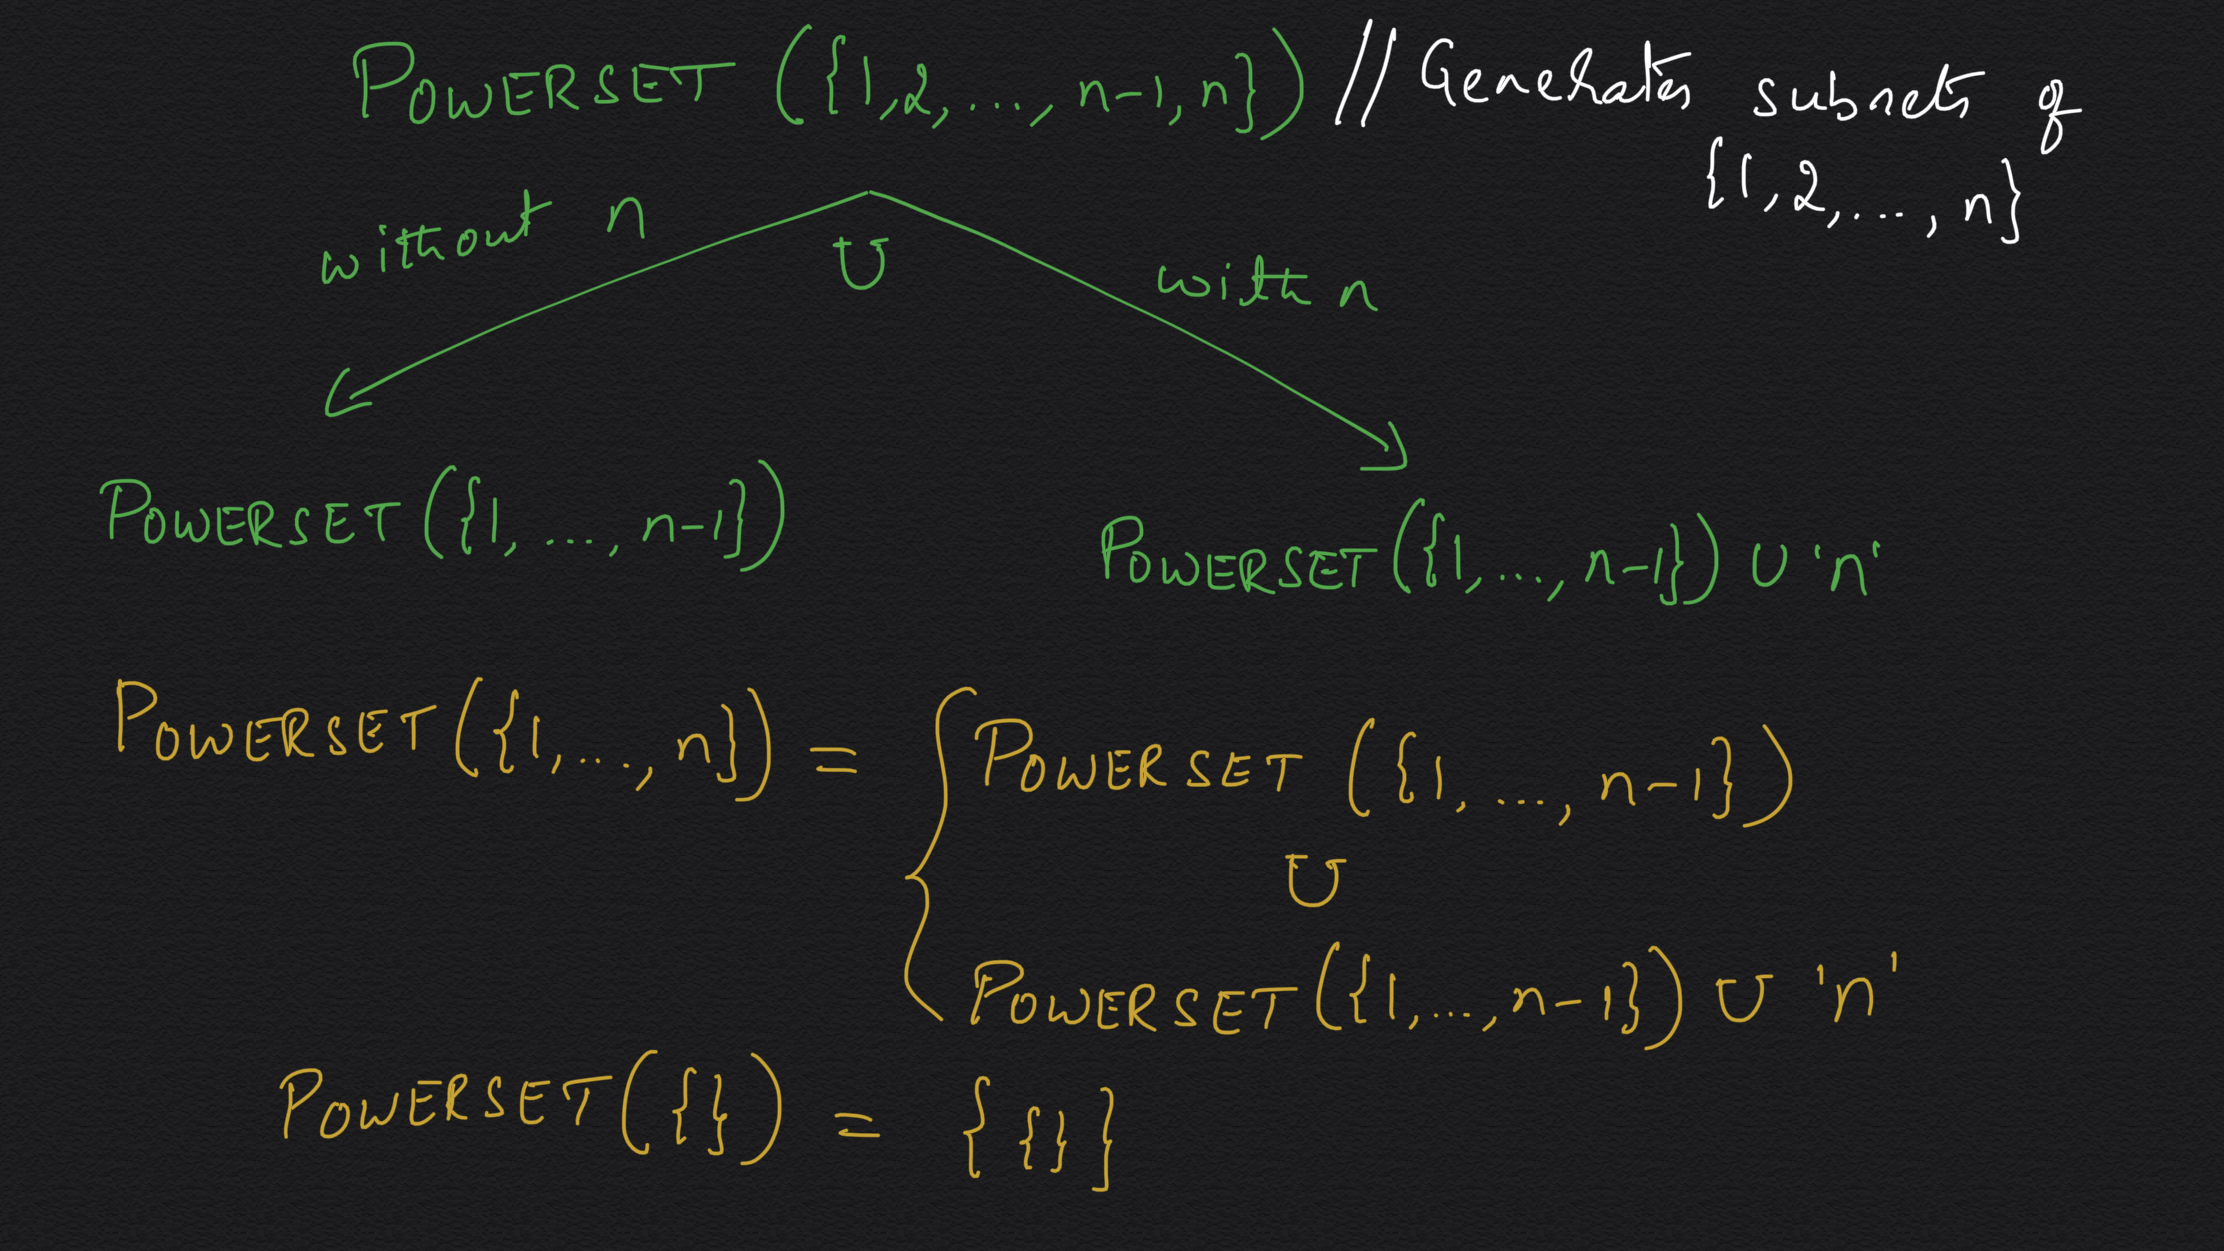 POWERSET ({1,2,...,n-1,n}) // Generates subsets of
{1,2,...,n}
without n
∪
with n
POWERSET({1,...,n-1})
POWERSET({1,...,n-1}) ∪ 'n'
POWERSET({1,...,n}) = { POWERSET ({1,...,n-1})
∪
POWERSET({1,...,n-1}) ∪ 'n'
POWERSET({}) = {{}}